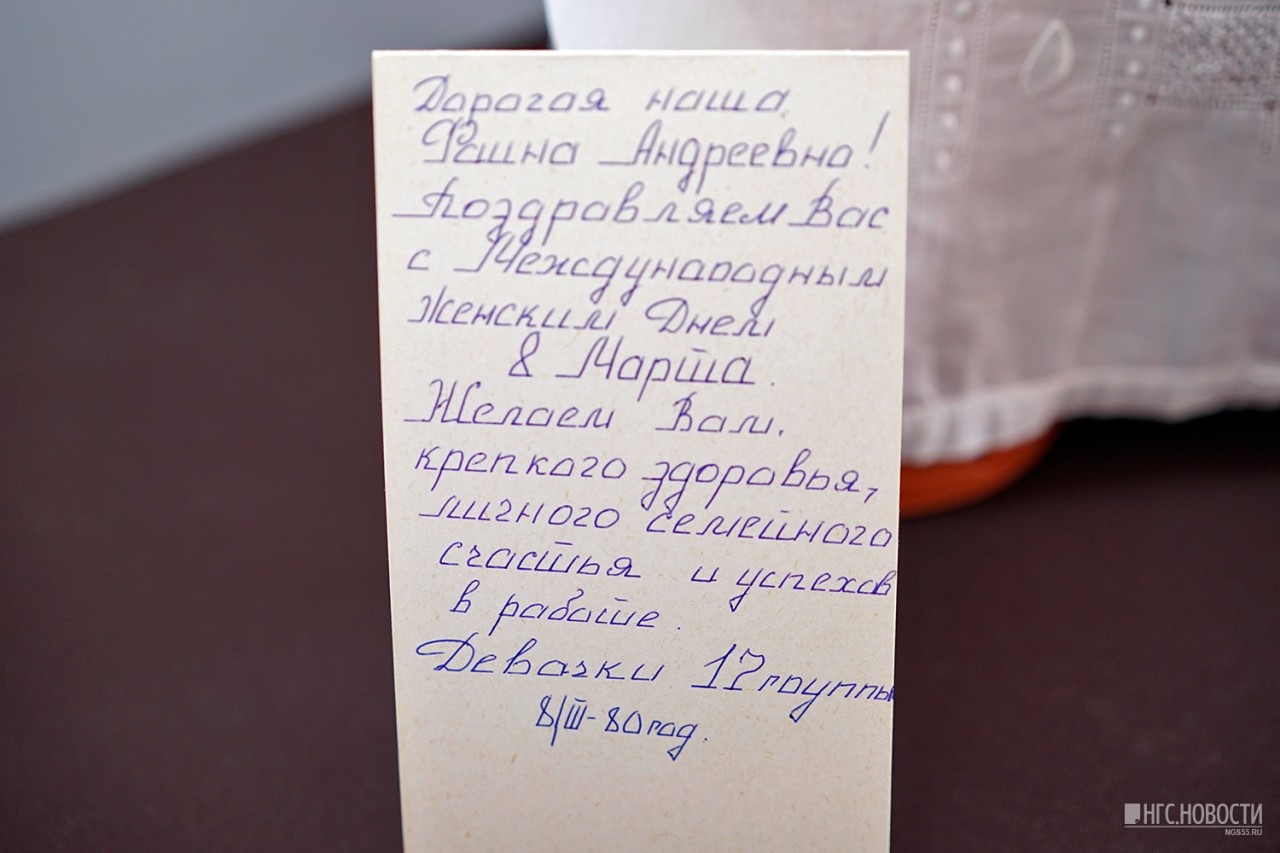 Дорогая наша
Фаина Андреевна!
Поздравляем Вас
с Международным
женским Днем
8 Марта.
Желаем Вам.
крепкого здоровья,
личного семейного
счастья и успехов
в работе.
Девочки 17 группы
8/III-80 год.
НГС.НОВОСТИ
NGS55.RU